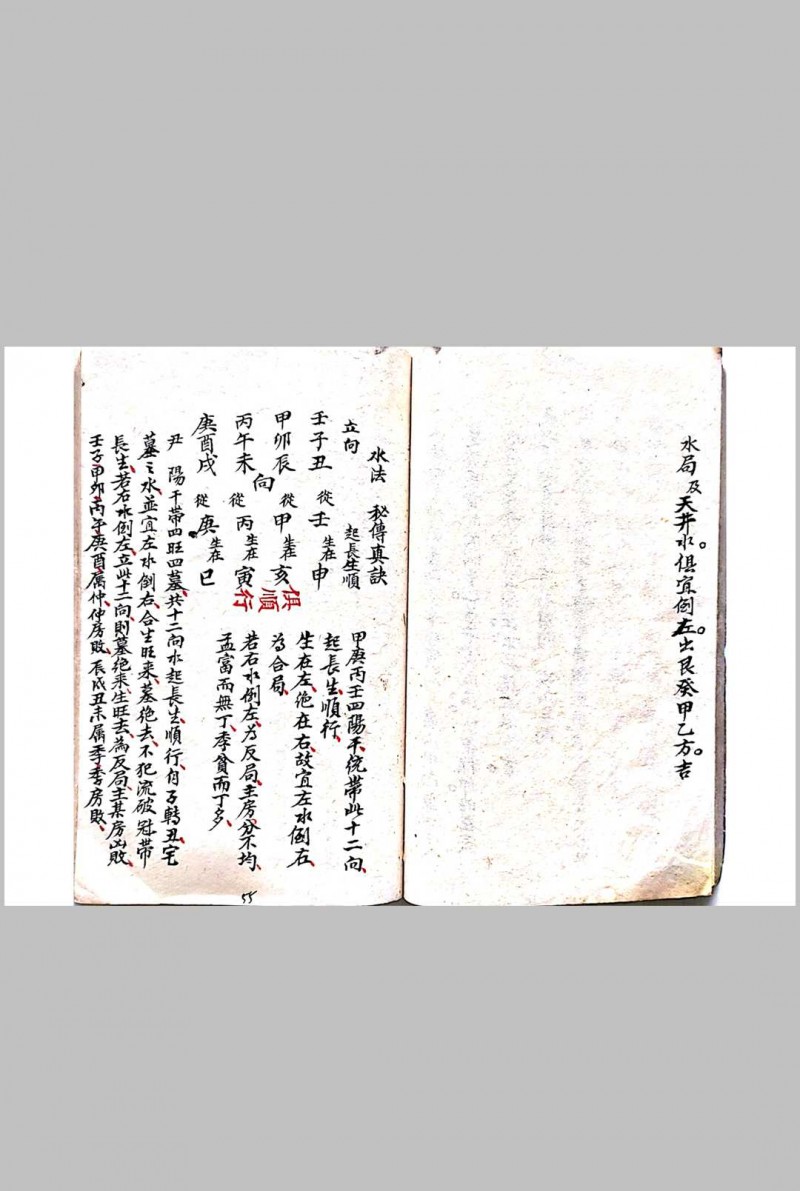 水局及天井水。俱宜倒左。出艮癸甲乙方。吉
水法 秘傳真訣
立向 起長生順
壬子丑 從壬生在申
甲卯辰向 從甲生在亥
丙午未 從丙生在寅
庚酉戌 從庚生在巳
俱順行
甲庚丙壬四陽干統帶此十二向、
起長生順行、
生在左、絕在右、故宜左水倒右、
為合局、
若右水倒左、為反局、主房分不均、
孟富而無丁、季貧而丁多、
尹 陽干帶四旺四墓、共十二向水起長生順行、自子轉丑、宅
墓之水、並宜左水倒右、合生旺來、墓絕去、不犯流破冠帶
長生、若右水倒左、立此十二向、則墓絕來、生旺去、為反局、主某房凶敗、
壬子、甲卯、丙午、庚酉、属仲、仲房敗、辰戌丑未属季、季房敗、
55